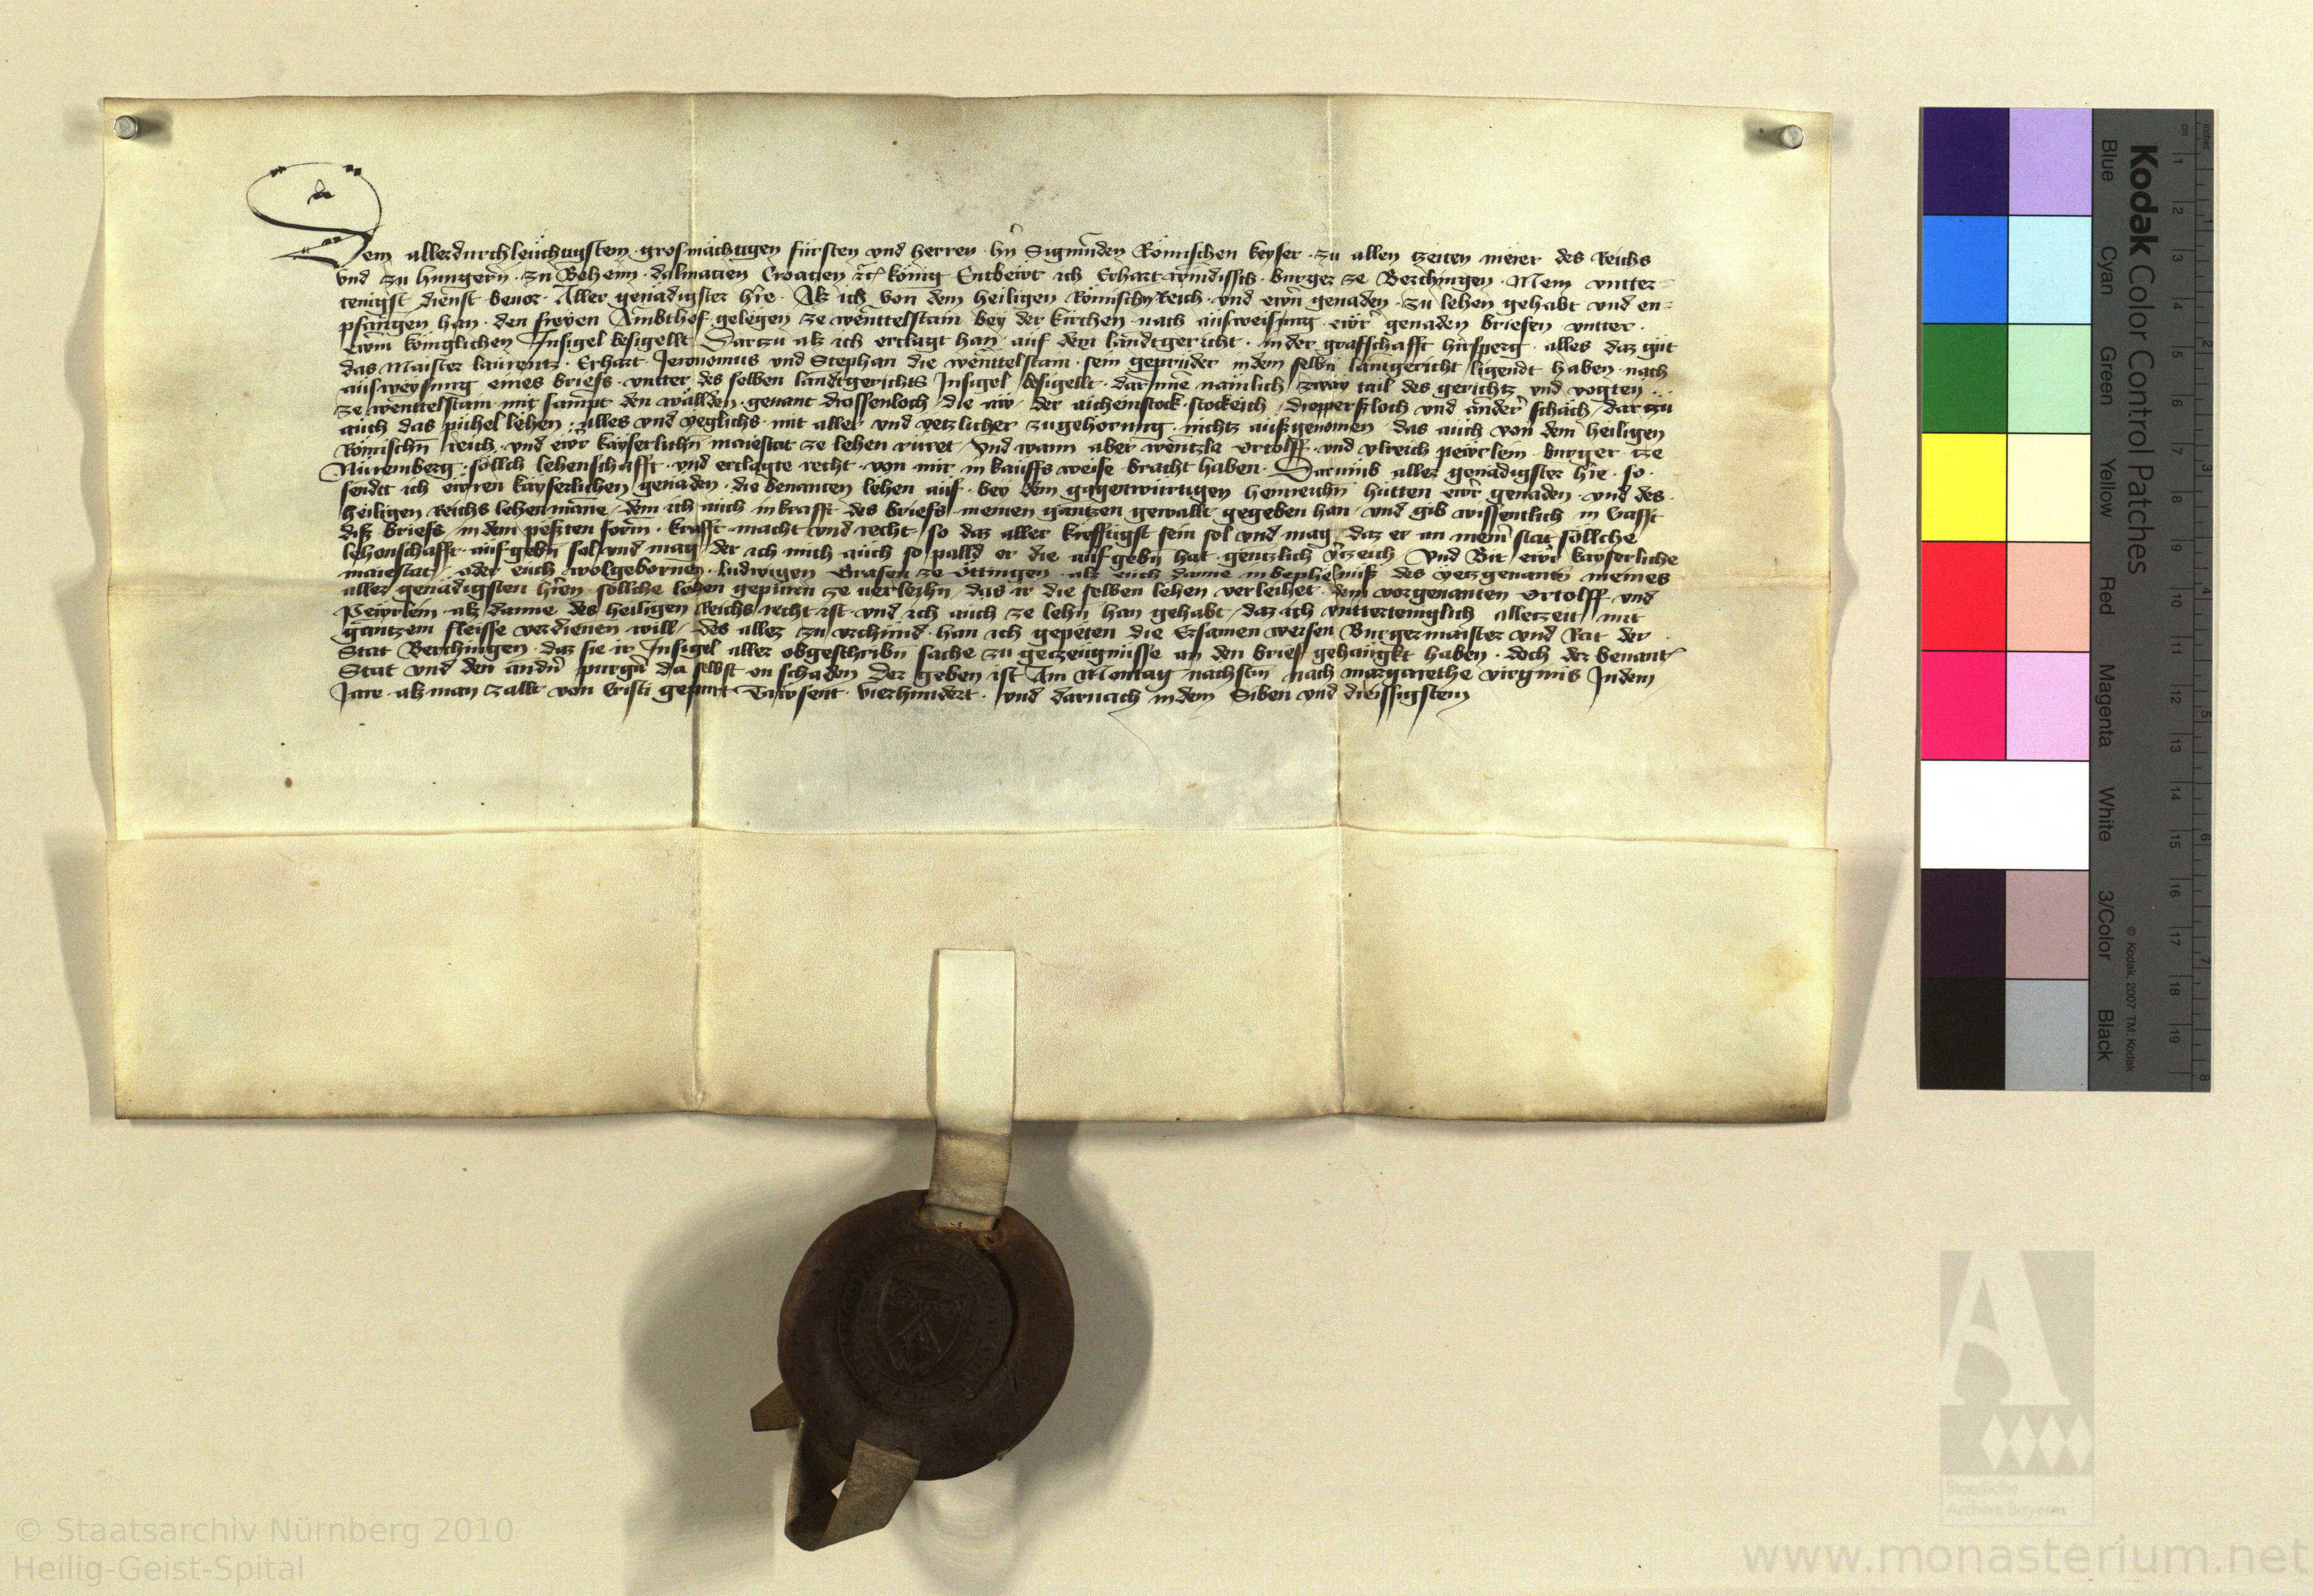 Dem allerdurchleuchtigstem grosmächtigen fürsten vnd herren hn̄ Sigmunden Römischen keyser zu allen tzeiten merer des Reichs
vnd zu hungern zu Beheim dalmatien Croatien etc könig Entbewt ich Erhart windissch burger ze Berchingen Mein vntter=
tenigst dienst beuor Aller genädigster hre Alz ich von dem heiligen Römischn Reich vnd ewrn genaden zu lehen gehabt vnd en=
pfangen han den freyen Ambthof gelegen ze wenttelstain bey der kirchen nach ausweisung ewr genaden briefen vntter
ewrm königlichen Insigel besigellt Dartzu alz ich erclagt han auf dem landtgericht in der grafschafft hirsperg alles daz gut
das Maister laurentz Erhart Jeronomus vnd Stephan die wenttelstain sein geprüder in dem selbn lantgericht ligendt haben nach
ausweysung eines briefs vntter des selben landtgerichts Insigel besigellt darinne nämlich zway tail des gerichtz vnd vogtey
ze wenttelstain mit sampt den wällden genant drossenloch die aw der aicheinstock stockeich diepperßloch vnd ander schäch dartzu
auch das pühel lehen alles vnd yeglichs mit aller vnd yetzlicher zugehörung nichtz außgenomen das auch von dem heiligen
Römischn reich vnd ewr kayserlichn maiestat ze lehen rüret vnd wann aber wentzla Ortolff vnd vlreich pewrlein burger tze
Nüremberg söllch lehenschafft vnd erclagte recht von mir in kauffs weise bracht haben Darumb aller genädigster hre so
sendt ich ewren kayserlichen genaden die benanten lehen auf bey dem gagenwürtigen heinreichn hütten ewr genaden vnd des
heiligen Reichs lehenmane dem ich auch in krafft des briefs meinen gantzen gewallt gegeben han vnd gib wissentlich in krafft
diß briefs in dem pesten form krafft macht vnd recht so daz aller krefftigst sein sol vnd mag daz er an meinr stat söllche
lehenschafft aufgebn sol vnd mag der ich mich auch so palld er die aufgebn hat gentzlich v̄tzeich Vnd Bit ewr kayserliche
maiestat oder euch wolgebornen ludwigen Grafen ze Öttingen alz euch danne in bephelnüß des yetzgenantn meines
aller genädigsten hren söllche lehen gepüren ze uerleihn das ir die selben lehen verleihet dem vorgenanten Ortolff vnd
Pewrlein alz danne des heiligen Reichs recht ist vnd ich auch ze lehn han gehabt daz ich vnttertenigklich alletzeit mit
gantzem fleisse verdienen will des allez zu vrchund han ich gepeten die Ersamen weysen Burgermaister vnd Rat der
Stat Berchingen daz sie ir Insigel aller obgeschribn sache zu getzeugnüsse an den brief gehangkt haben doch der benant
Stat vnd den andn̄ purgn̄ da selbst on schaden Der geben ist Am Montag nachstn nach margarethe virginis In dem
Jare alz man zallt von Cristi gepurt Tawsent vierhundert vnd darnach in dem Siben vnd dreissigstem
Kodak Color Control Patches
Blue Cyan Green Yellow Red Magenta White 3/Color Black
© Kodak, 2007 TM: Kodak
cm 1 2 3 4 5 6 7 8 9 10 11 12 13 14 15 16 17 18 19
inches 1 2 3 4 5 6 7 8
© Staatsarchiv Nürnberg 2010
Heilig-Geist-Spital
Staatliche
Archive Bayerns
www.monasterium.net